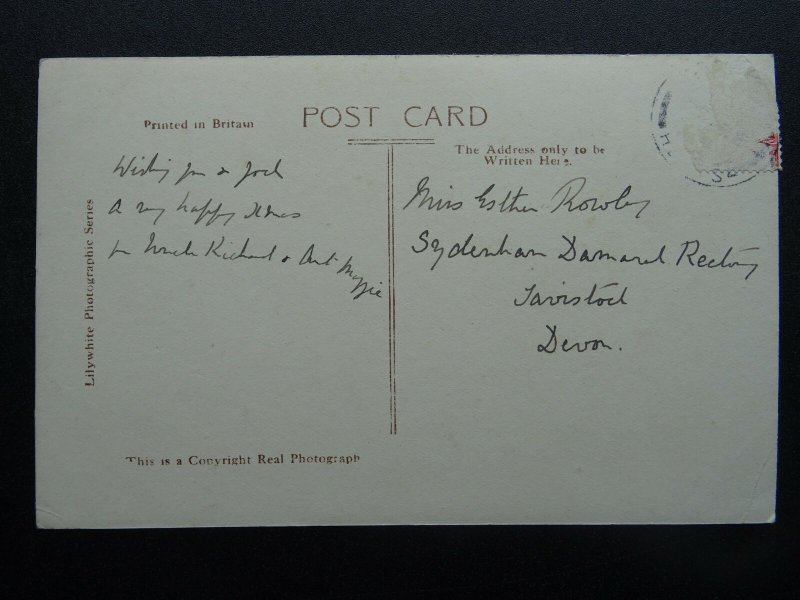 Printed in Britain
POST CARD
The Address only to be
Written Here.
Lilywhite Photographic Series
Wishing you & Jock
A very happy Xmas
fm Uncle Richard & Ant Meggie
Miss Esther Rowley
Sydenham Damarel Rectory
Tavistock
Devon.
This is a Copyright Real Photograph